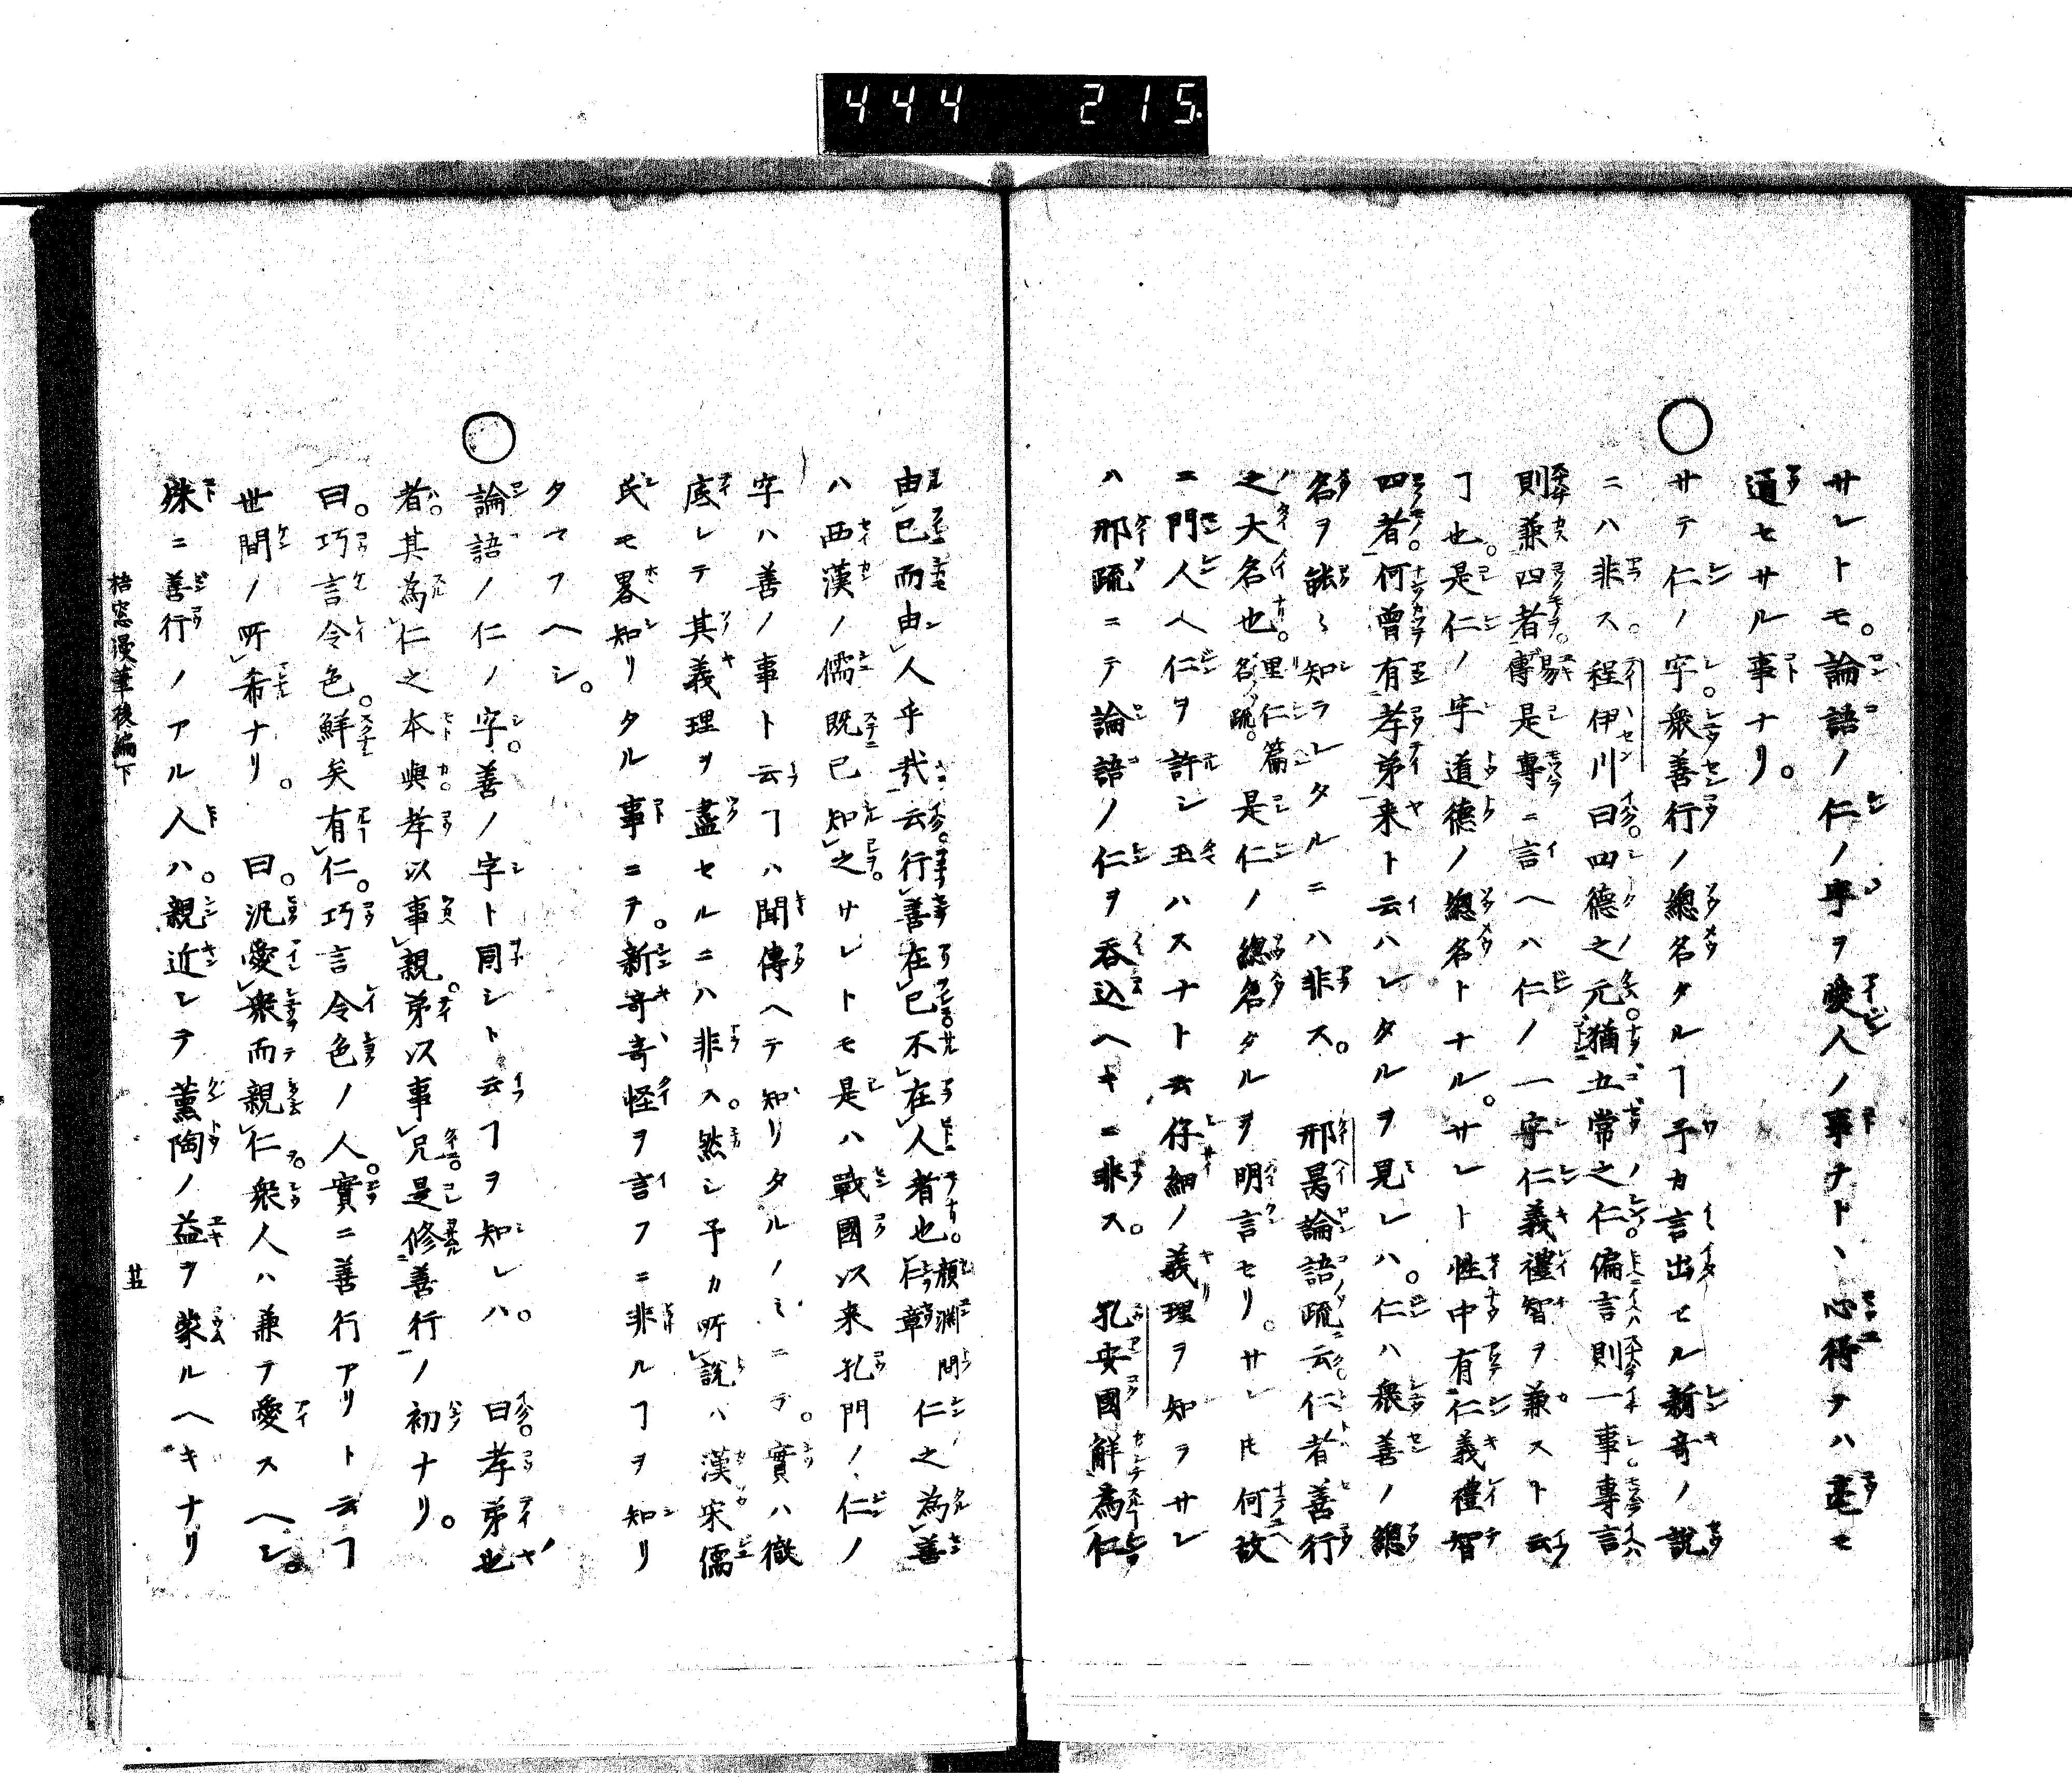 444 215
サレトモ。論語ノ仁ノ字ヲ愛人ノ事ナト、心得テハ毫モ
通セサル事ナリ。
○サテ仁ノ字。衆善行ノ總名タルヿ予カ言出セル新奇ノ説
ニハ非ス。程伊川曰。四德之元。猶五常之仁。偏言則一事專言
則兼四者。易傳是專ニ言ヘハ仁ノ一字仁義禮智ヲ兼スト云
ヿ也。是仁ノ字道德ノ總名トナル。サレト性中有仁義禮智
四者。何曾有孝弟来ト云ハレタルヲ見レハ。仁ハ衆善ノ總
名ヲ能々知ラレタルニハ非ス。邢昺論語疏云。仁者善行
之大名也。里仁篇名疏。是仁ノ總名タルヲ明言セリ。サレ𪜈何故
ニ門人ヘ仁ヲ許シ玉ハスナト云仔細ノ義理ヲ知ラサレ
ハ邢疏ニテ論語ノ仁ヲ呑込ヘキニ非ス。孔安國解為仁
由己而由人乎哉云。行善在己不在人者也。顔淵問仁章仁之為善
ハ西漢ノ儒既已知之。サレトモ是ハ戰國以来孔門ノ仁ノ
字ハ善ノ事ト云ヿハ聞傳ヘテ知リタルノミニテ。實ハ徹
底シテ其義理ヲ盡セルニハ非ス。然シ予カ所説ハ漢宋儒
氏モ畧知リタル事ニテ。新奇奇怪ヲ言フニ非ルヿヲ知リ
タマフヘシ。
○論語ノ仁ノ字。善ノ字ト同シト云ヿヲ知レハ。曰。孝弟也
者。其為仁之本與孝以事親。弟以事兄是修善行ノ初ナリ。
曰。巧言令色。鮮矣有仁。巧言令色ノ人。實ニ善行アリト云ヿ
世間ノ所希ナリ。曰。汎愛衆而親仁。衆人ハ兼テ愛スヘシ。
殊ニ善行ノアル人ハ。親近シテ薫陶ノ益ヲ蒙ルヘキナリ
梧窓漫筆後編下 廿五